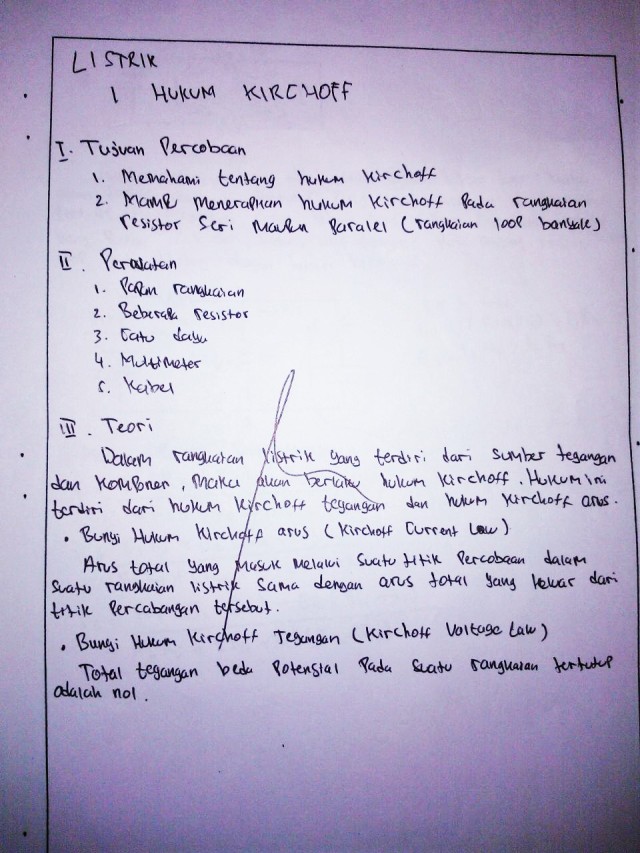 LISTRIK
1 HUKUM KIRCHOFF
I. Tujuan Percobaan
1. Memahami tentang hukum Kirchoff
2. Mampu menerapkan hukum Kirchoff pada rangkaian
resistor seri maupun paralel (rangkaian loop banyak)
II. Peralatan
1. Papan rangkaian
2. Beberapa resistor
3. Catu daya
4. Multimeter
5. Kabel
III. Teori
Dalam rangkaian listrik yang terdiri dari sumber tegangan
dan komponen, maka akan berlaku hukum Kirchoff. Hukum ini
terdiri dari hukum Kirchoff tegangan dan hukum Kirchoff arus.
• Bunyi Hukum Kirchoff arus (Kirchoff Current Law)
Arus total yang masuk melalui suatu titik Percobaan dalam
suatu rangkaian listrik sama dengan arus total yang keluar dari
titik Percabangan tersebut.
• Bunyi Hukum Kirchoff Tegangan (Kirchoff Voltage Law)
Total tegangan beda potensial pada suatu rangkaian tertutup
adalah nol.